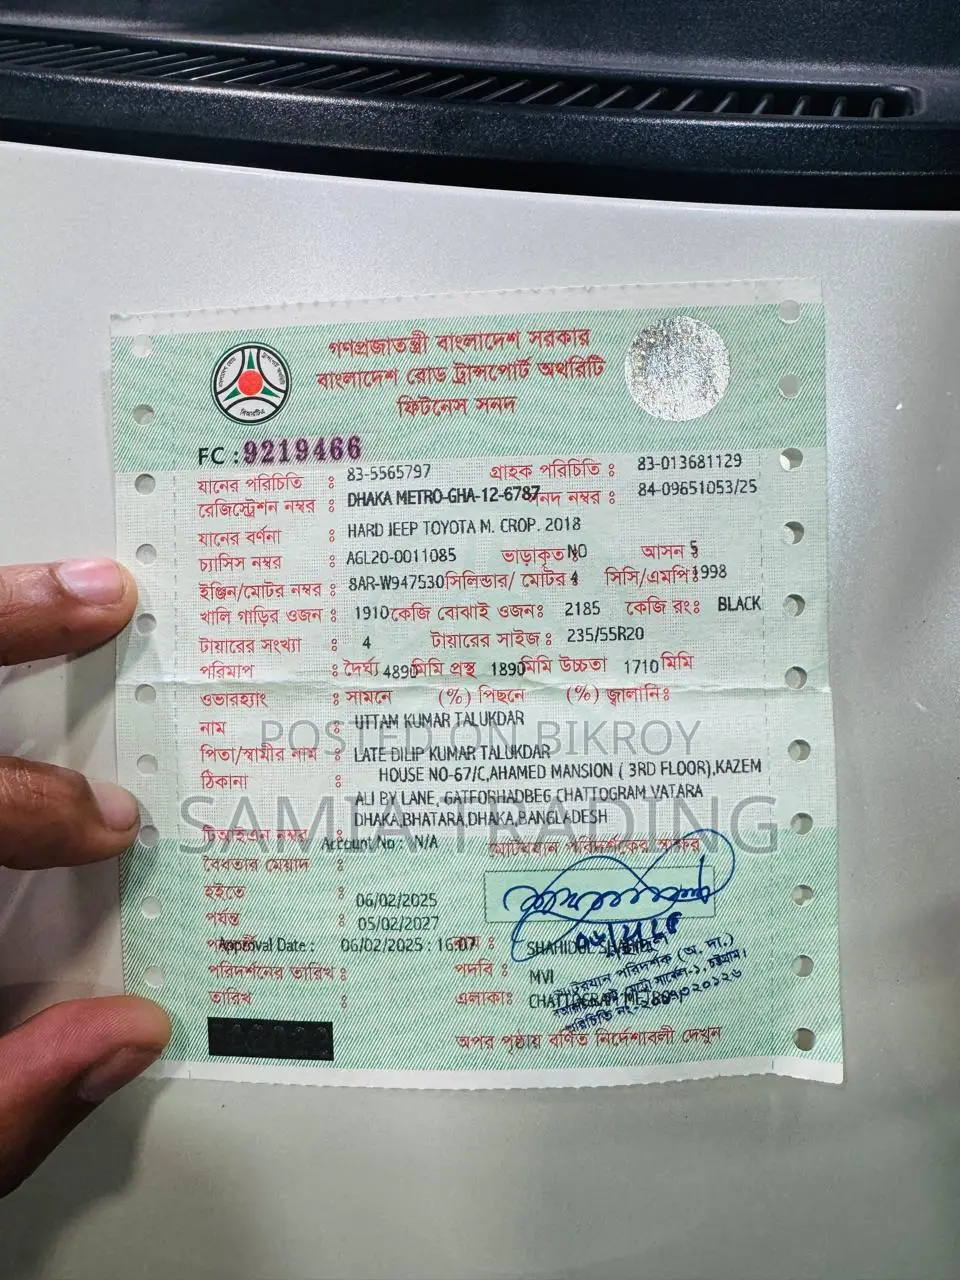 গণপ্রজাতন্ত্রী বাংলাদেশ সরকার
বাংলাদেশ রোড ট্রান্সপোর্ট অথরিটি
ফিটনেস সনদ
বিআরটিএ
FC : 9219466
যানের পরিচিতি : 83-5565797 গ্রাহক পরিচিতি : 83-013681129
রেজিস্ট্রেশন নম্বর : DHAKA METRO-GHA-12-6787 সনদ নম্বর : 84-09651053/25
যানের বর্ণনা : HARD JEEP TOYOTA M. CROP. 2018
চ্যাসিস নম্বর : AGL20-0011085 ভাড়াকৃত : NO আসন : 5
ইঞ্জিন/মোটর নম্বর : 8AR-W947530 সিলিন্ডার/ মোটর 4 সিসি/এমপি : 1998
খালি গাড়ির ওজন : 1910 কেজি বোঝাই ওজন : 2185 কেজি রং : BLACK
টায়ারের সংখ্যা : 4 টায়ারের সাইজ : 235/55R20
পরিমাপ : দৈর্ঘ্য 4890 মিমি প্রস্থ 1890 মিমি উচ্চতা 1710 মিমি
ওভারহ্যাং : সামনে (%) পিছনে (%) জ্বালানি :
নাম : UTTAM KUMAR TALUKDAR
POSTED ON BIKROY
পিতা/স্বামীর নাম : LATE DILIP KUMAR TALUKDAR
ঠিকানা : HOUSE NO-67/C,AHAMED MANSION ( 3RD FLOOR),KAZEM
ALI BY LANE, GATFORHADBEG CHATTOGRAM VATARA
SAMIA TRADING
DHAKA,BHATARA,DHAKA,BANGLADESH
টিআইএন নম্বর : Account No : N/A মোটরযান পরিদর্শকের স্বাক্ষর
বৈধতার মেয়াদ
হইতে : 06/02/2025
পর্যন্ত : 05/02/2027
Approval Date : 06/02/2025 : 16:07 নাম : SHAHIDUL
পরিদর্শনের তারিখ : পদবি : MVI
তারিখ : এলাকা : CHATTOGRAM
মোটরযান পরিদর্শক (অ. দা.)
অপর পৃষ্ঠায় বর্ণিত নির্দেশাবলী দেখুন